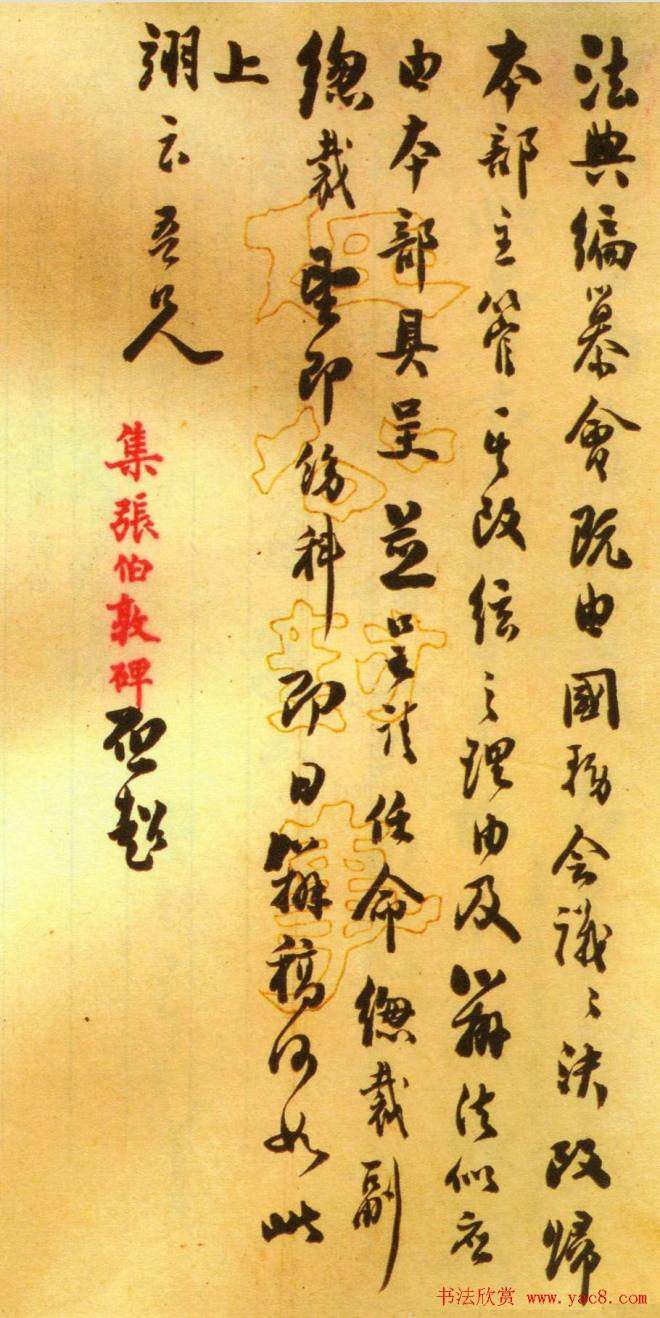 法典编纂會既由國務会議議決改歸
本部主管其改綫之理由及辦法似应
由本部具呈並呈請任命總裁副
總裁望即飭科即日辦稿何如此
上
翊云吾兄
集張伯敦碑
啟超
书法欣赏 www.yac8.com